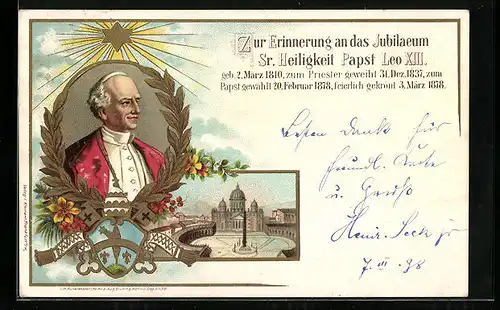 Zur Erinnerung an das Jubilaeum
Sr. Heiligkeit Papst Leo XIII.
geb. 2. März 1810, zum Priester geweiht 31. Dez. 1837, zum
Papst gewählt 20. Februar 1878, feierlich gekrönt 3. März 1878.
Besten Dank für
freundl. Karte
u. Gruß
Heinr. Seck jr
7. III. 98